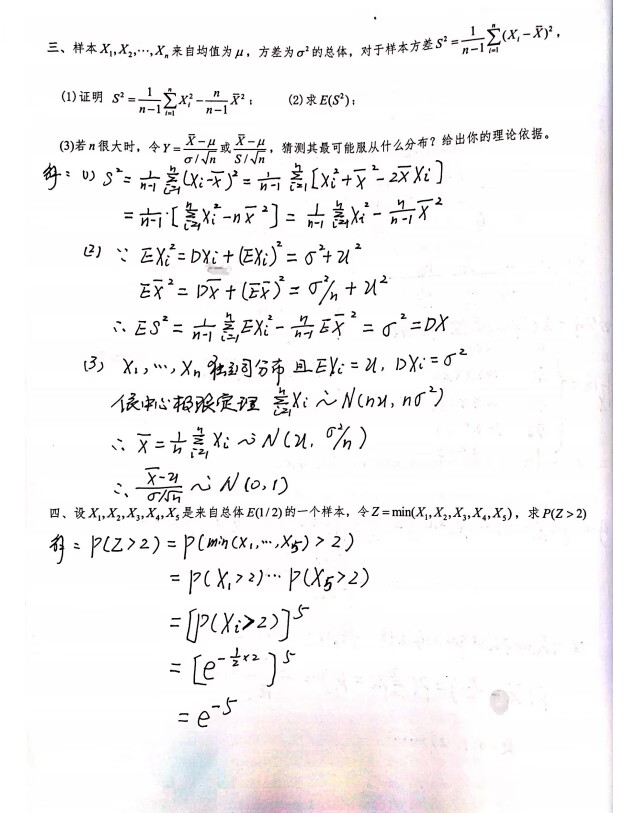 三、样本 X₁,X₂,…,Xₙ 来自均值为 μ，方差为 σ² 的总体，对于样本方差 S² = \frac{1}{n-1}\sum_{i=1}^{n}(X_i-\bar{X})²，
(1)证明 S² = \frac{1}{n-1}\sum_{i=1}^{n}X_i² - \frac{n}{n-1}\bar{X}²； (2)求 E(S²)；
(3)若 n 很大时，令 Y = \frac{\bar{X}-μ}{σ/\sqrt{n}} 或 \frac{\bar{X}-μ}{S/\sqrt{n}}，猜测其最可能服从什么分布？给出你的理论依据。
解：(1) S² = \frac{1}{n-1}\sum_{i=1}^{n}(X_i-\bar{X})² = \frac{1}{n-1}\sum_{i=1}^{n}[X_i²+\bar{X}²-2\bar{X}X_i]
= \frac{1}{n-1}·[\sum_{i=1}^{n}X_i²-n\bar{X}²] = \frac{1}{n-1}\sum_{i=1}^{n}X_i² - \frac{n}{n-1}\bar{X}²
(2) ∵ EX_i² = DX_i+(EX_i)² = σ²+u²
E\bar{X}² = D\bar{X}+(E\bar{X})² = σ²/n+u²
∴ ES² = \frac{1}{n-1}\sum_{i=1}^{n}EX_i² - \frac{n}{n-1}E\bar{X}² = σ² = DX
(3) X₁,…,Xₙ 独立同分布 且 EX_i = u, DX_i = σ²
依中心极限定理 \sum_{i=1}^{n}X_i ~ N(nu, nσ²)
∴ \bar{X} = \frac{1}{n}\sum_{i=1}^{n}X_i ~ N(u, σ²/n)
∴ \frac{\bar{X}-u}{σ/\sqrt{n}} ~ N(0,1)
四、设 X₁,X₂,X₃,X₄,X₅ 是来自总体 E(1/2) 的一个样本，令 Z = min(X₁,X₂,X₃,X₄,X₅)，求 P(Z>2)
解：P(Z>2) = P(min(X₁,…,X₅)>2)
= P(X₁>2)…P(X₅>2)
= [P(X_i>2)]⁵
= [e^{-\frac{1}{2}×2}]⁵
= e⁻⁵